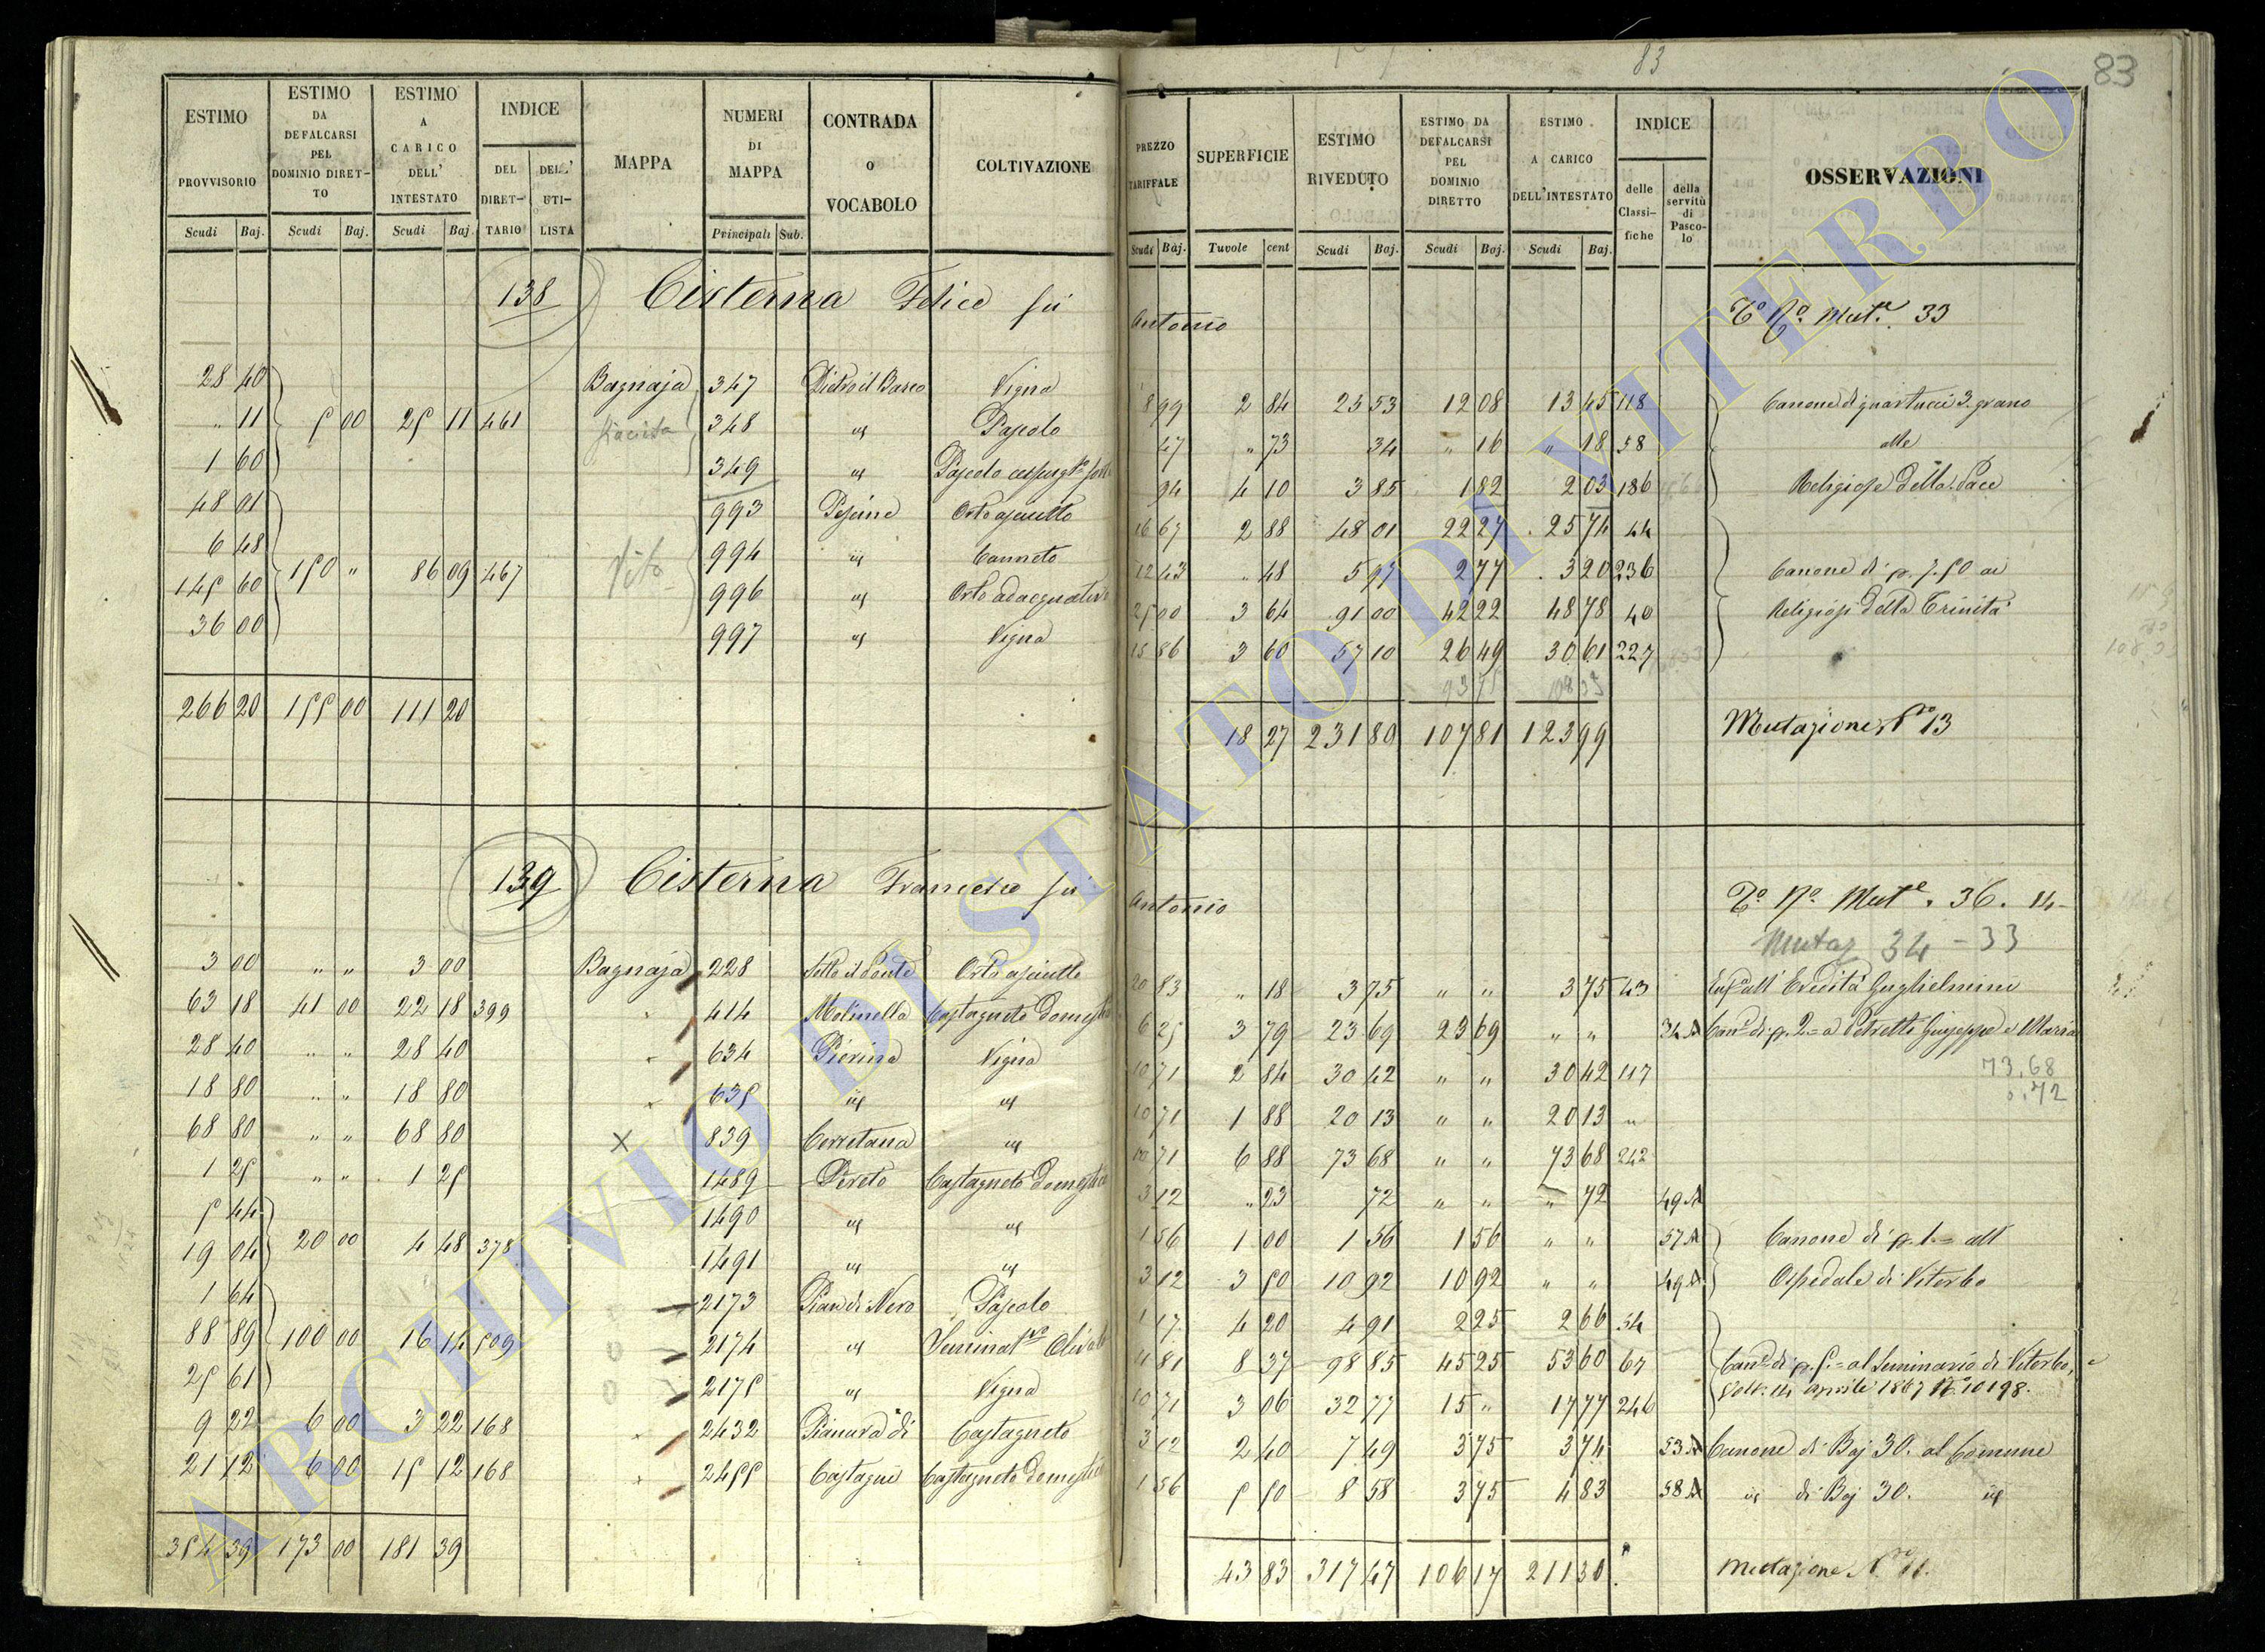 83
83
ESTIMO PROVVISORIO Scudi Baj.
ESTIMO DA DEFALCARSI PEL DOMINIO DIRETTO Scudi Baj.
ESTIMO A CARICO DELL' INTESTATO Scudi Baj.
INDICE DEL DIRETTARIO DELL' UTILISTA
MAPPA
NUMERI DI MAPPA Principali Sub.
CONTRADA O VOCABOLO
COLTIVAZIONE
PREZZO TARIFFALE Scudi Baj.
SUPERFICIE Tuvole cent
ESTIMO RIVEDUTO Scudi Baj.
ESTIMO DA DEFALCARSI PEL DOMINIO DIRETTO Scudi Baj.
ESTIMO A CARICO DELL'INTESTATO Scudi Baj.
INDICE delle Classifiche della servitù di Pascolo
OSSERVAZIONI
138 Cisterna Felice fù Antonio 33
28 40 Bagnaja 347 Dietro il Barco Vigna 8 99 2 84 25 53 12 08 13 45 118 Canone di quartucci 3. grano
" 11 5 00 25 11 461 348 " Pascolo 47 " 73 34 " 16 " 18 58 alle
1 60 349 " Pascolo 94 4 10 3 85 1 82 2 03 186 Religiose della Pace
48 01 993 Orto asciutto 16 67 2 88 48 01 22 27 25 74 44
6 48 994 " Canneto 12 43 " 48 5 97 2 77 3 20 236 Canone di p. 7.50 ai
145 60 150 " 86 09 467 Vito 996 " Orto adacquativo 25 00 3 64 91 00 42 22 48 78 40 Religiosi della Trinità
36 00 997 " Vigna 15 86 3 60 57 10 26 49 30 61 227
266 20 155 00 111 20 18 27 231 80 107 81 123 99 Mutazione N° 13
139 Cisterna Francesco fù Antonio 36. 14
Mutaz 34 - 33
3 00 " " 3 00 Bagnaja 228 Sotto il Ponte Orto asciutto 20 83 " 18 3 75 " " 3 75 43 all' Eredità Guglielmini
63 18 41 00 22 18 399 414 Molinella Castagneto domestico 6 25 3 79 23 69 23 69 " " 34 A Can.e di p. 2= a Petretti Giuseppe e Maria
28 40 " " 28 40 634 Pierina Vigna 10 71 2 84 30 42 " " 30 42 117 73.68
18 80 " " 18 80 635 " " 10 71 1 88 20 13 " " 20 13 " 0.72
68 80 " " 68 80 X 839 Cerretana " 10 71 6 88 73 68 " " 73 68 242
1 25 " " 1 25 1489 Pireto Castagneto domestico 3 12 " 23 72 " " " 72 49 A
5 44 1490 " " 1 56 1 00 1 56 1 56 " " 57 A Canone di p. 1= all
19 04 20 00 4 48 378 1491 " " 3 12 3 50 10 92 10 92 " " 49 A Ospedale di Viterbo
1 64 2173 Pian di Nero Pascolo 1 17 4 20 4 91 2 25 2 66 54
88 89 100 00 16 14 509 2174 " Seminat.vo Olivato 11 81 8 37 98 85 45 25 53 60 67 Can.e di p. 5= al Seminario di Viterbo,
25 61 2175 " Vigna 10 71 3 06 32 77 15 " 17 77 246 aprile 1867 N° 10198.
9 22 6 00 3 22 168 2432 Pianara di Castagneto 3 12 2 40 7 49 3 75 3 74 53 A Canone di Baj 30. al Comune
21 12 6 00 15 12 168 2455 Castagni Castagneto domestico 1 56 5 50 8 58 3 75 4 83 58 A " di Baj 30. "
354 39 173 00 181 39 43 83 317 47 106 17 211 30 Mutazione N.° 11.
ARCHIVIO DI STATO DI VITERBO